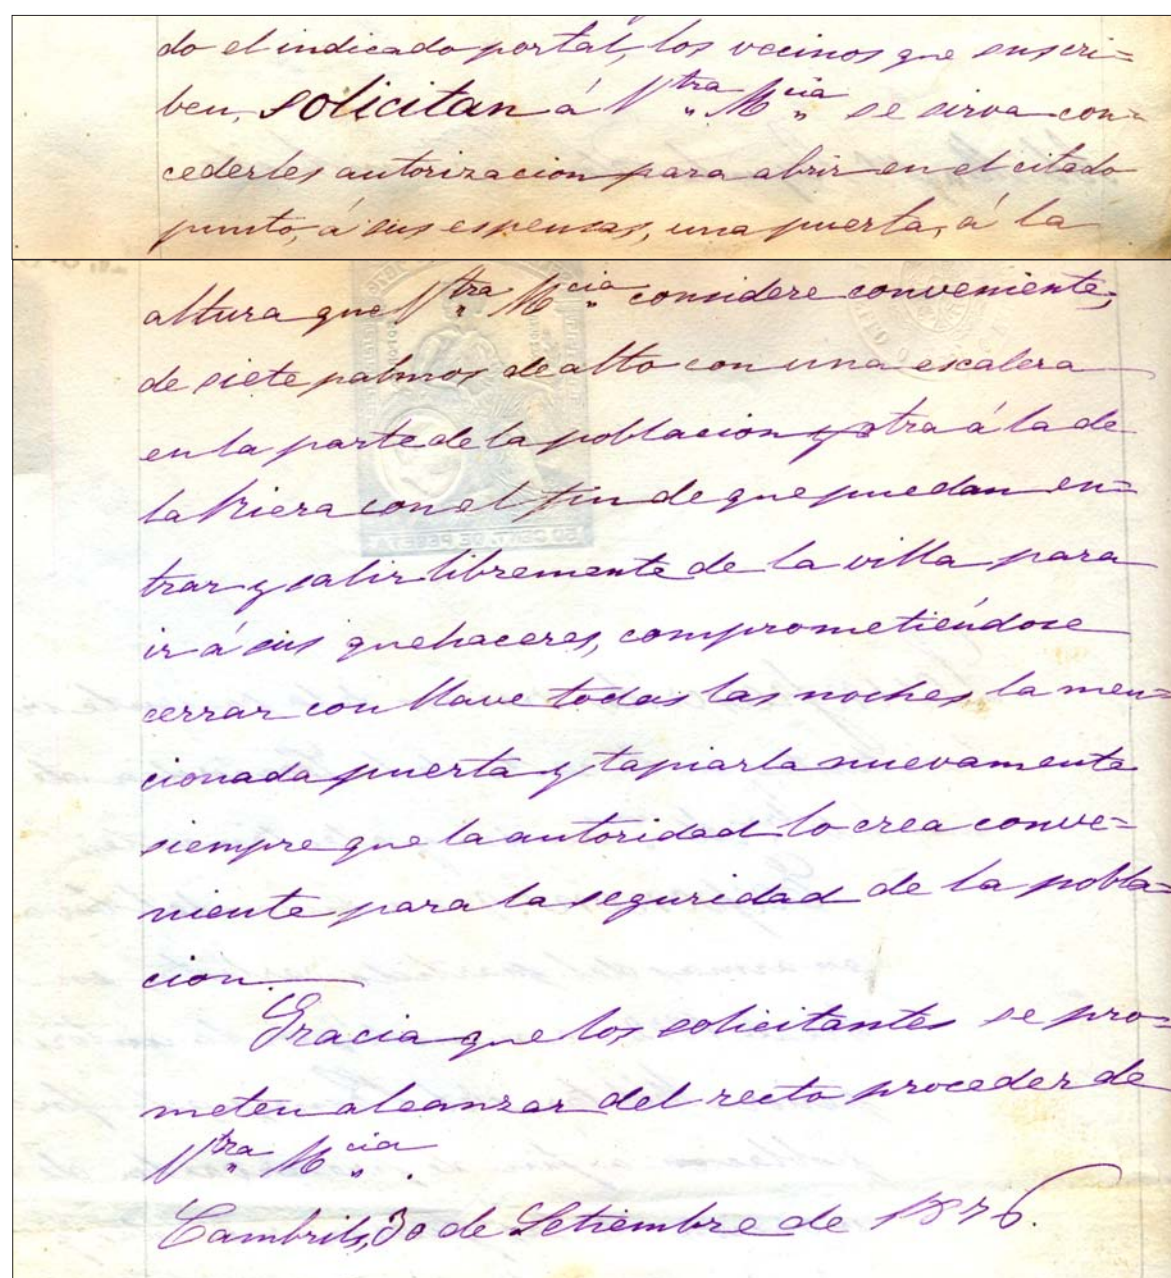 do el indicado portal, los vecinos que suscri=
ben, solicitan á Vtra. Mcia. se sirva con=
cederles autorizacion para abrir en el citado
punto, á sus espensas, una puerta, á la
altura que Vtra. Mcia. considere conveniente,
de siete palmos de alto con una escalera
en la parte de la poblacion y otra á la de
la Riera con el fin de que puedan en=
trar y salir libremente de la villa para
ir á sus quehaceres, comprometiéndose
cerrar con llave todas las noches la men=
cionada puerta y tapiarla nuevamente
siempre que la autoridad lo crea conve=
niente para la seguridad de la pobla=
cion.
Gracia que los solicitantes se pro=
meten alcanzar del recto proceder de
Vtra. Mcia.
Cambrils, 30 de Setiembre de 1876.